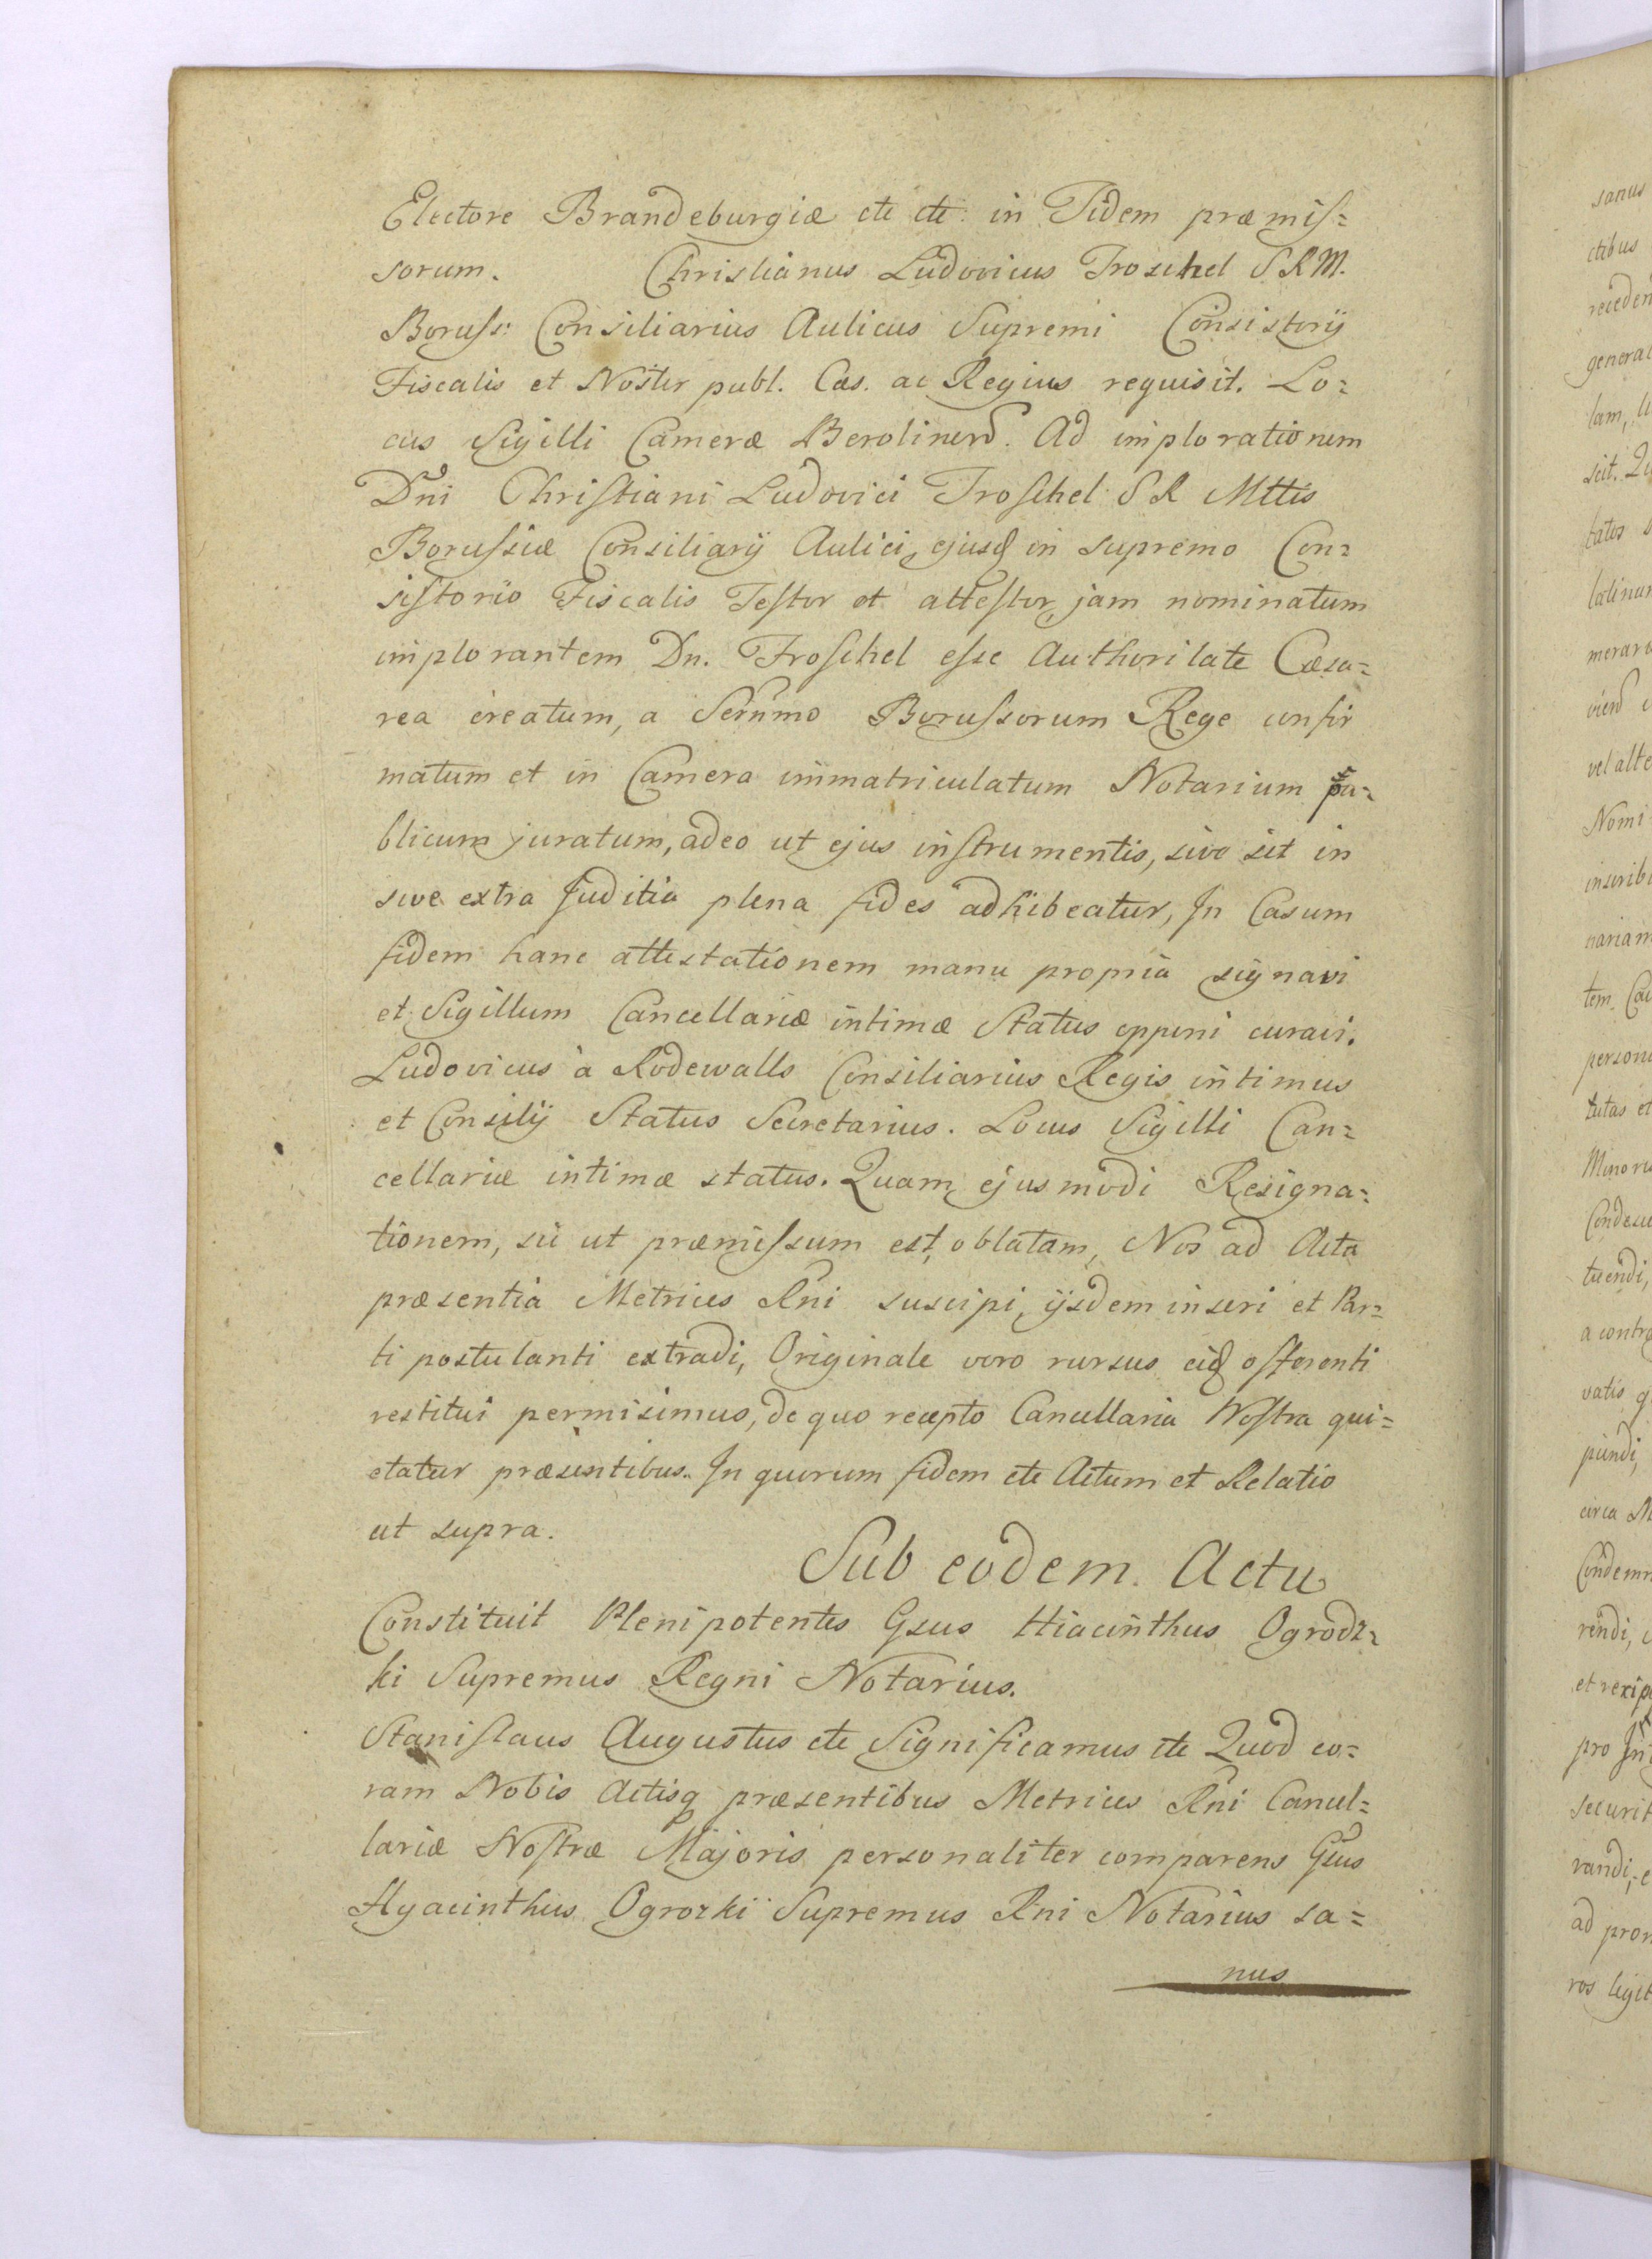 Electore Brandeburgiæ etc etc: in Fidem præmis=
sorum. Christianus Ludovicus Troschel S R M.
Boruss: Consiliarius Aulicus Supremi Consistorij
Fiscalis et Noster publ. Cæs. ac Regius requisit. Lo=
cus Sigilli Cameræ Berolinens. Ad implorationem
Dni Christiani Ludovici Troschel S R Mttis
Borussiæ Consiliarij Aulici, ejusq in supremo Con=
sistorio Fiscalis Testor et attestor, jam nominatum
implorantem Dn. Troschel esse Authoritate Cæsa=
rea creatum, a Sermmo Borussorum Rege confir
matum et in Camera immatriculatum Notarium pu=
blicum juratum, adeo ut ejus instrumentis, sive sit in
sive extra Juditia plena fides adhibeatur, In Casum
fidem hanc attestationem manu propria signavi
et Sigillum Cancellariæ intimæ Status apponi curavi.
Ludovicus à Rodewalls Consiliarius Regis intimus
et Consilij Status Secretarius. Locus Sigilli Can=
cellariæ intimæ status. Quam ejusmodi Resigna=
tionem, sic ut præmissum est, oblatam, Nos ad Acta
præsentia Metrices Rni suscipi, ijsdem inseri et Par=
ti postulanti extradi, Originale vero rursus eidq offerenti
restitui permisimus, de quo recepto Cancellaria Nostra qui=
etatur præsentibus. In quorum fidem etc Actum et Relatio
ut supra.
Sub eodem Actu
Constituit Plenipotentes Gsus Hiacinthus Ogrodz=
ki Supremus Regni Notarius.
Stanislaus Augustus etc Significamus etc Quod co=
ram Nobis Actisq præsentibus Metrices Rni Cancel=
lariæ Nostræ Majoris personaliter comparens Gsus
Hyacinthus Ogrozki Supremus Rni Notarius sa=
nus
sanus
ctibus
receden
generac
lam,
scit.
tatus
latinum
merar
vel alte
Nomi
inscribi
nariam
tem.
person
tutas et
Minoru
tuendi,
a contra
vatis
circa
Condemn
rendi,
pro
securit
vandi,
ad pro
ros legit